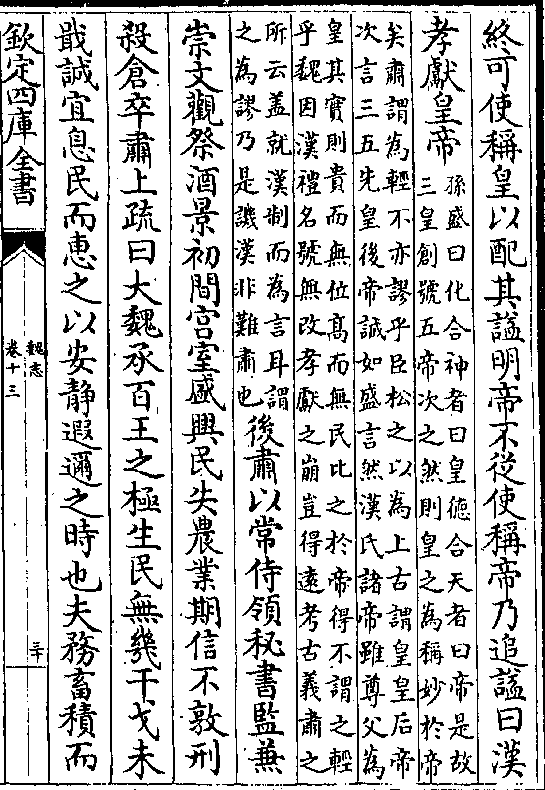 終可使稱皇以配其諡明帝不從使稱帝乃追諡曰漢
孝獻皇帝
孫盛曰化合神者曰皇德合天者曰帝是故
三皇創號五帝次之然則皇之為稱妙於帝
矣肅謂為輕不亦謬乎臣松之以為上古謂皇皇后帝
次言三五先皇後帝誠如盛言然漢氏諸帝雖尊父為
皇其實則貴而無位高而無民比之於帝得不謂之輕
乎魏因漢禮名號無改孝獻之崩豈得遠考古義肅之
所云蓋就漢制而為言耳謂
之為謬乃是譏漢非難肅也
後肅以常侍領秘書監兼
崇文觀祭酒景初間宮室盛興民失農業期信不敦刑
殺倉卒肅上疏曰大魏承百王之極生民無幾干戈未
戢誠宜息民而惠之以安靜遐邇之時也夫務畜積而
欽定四庫全書
魏志
卷十三
三十